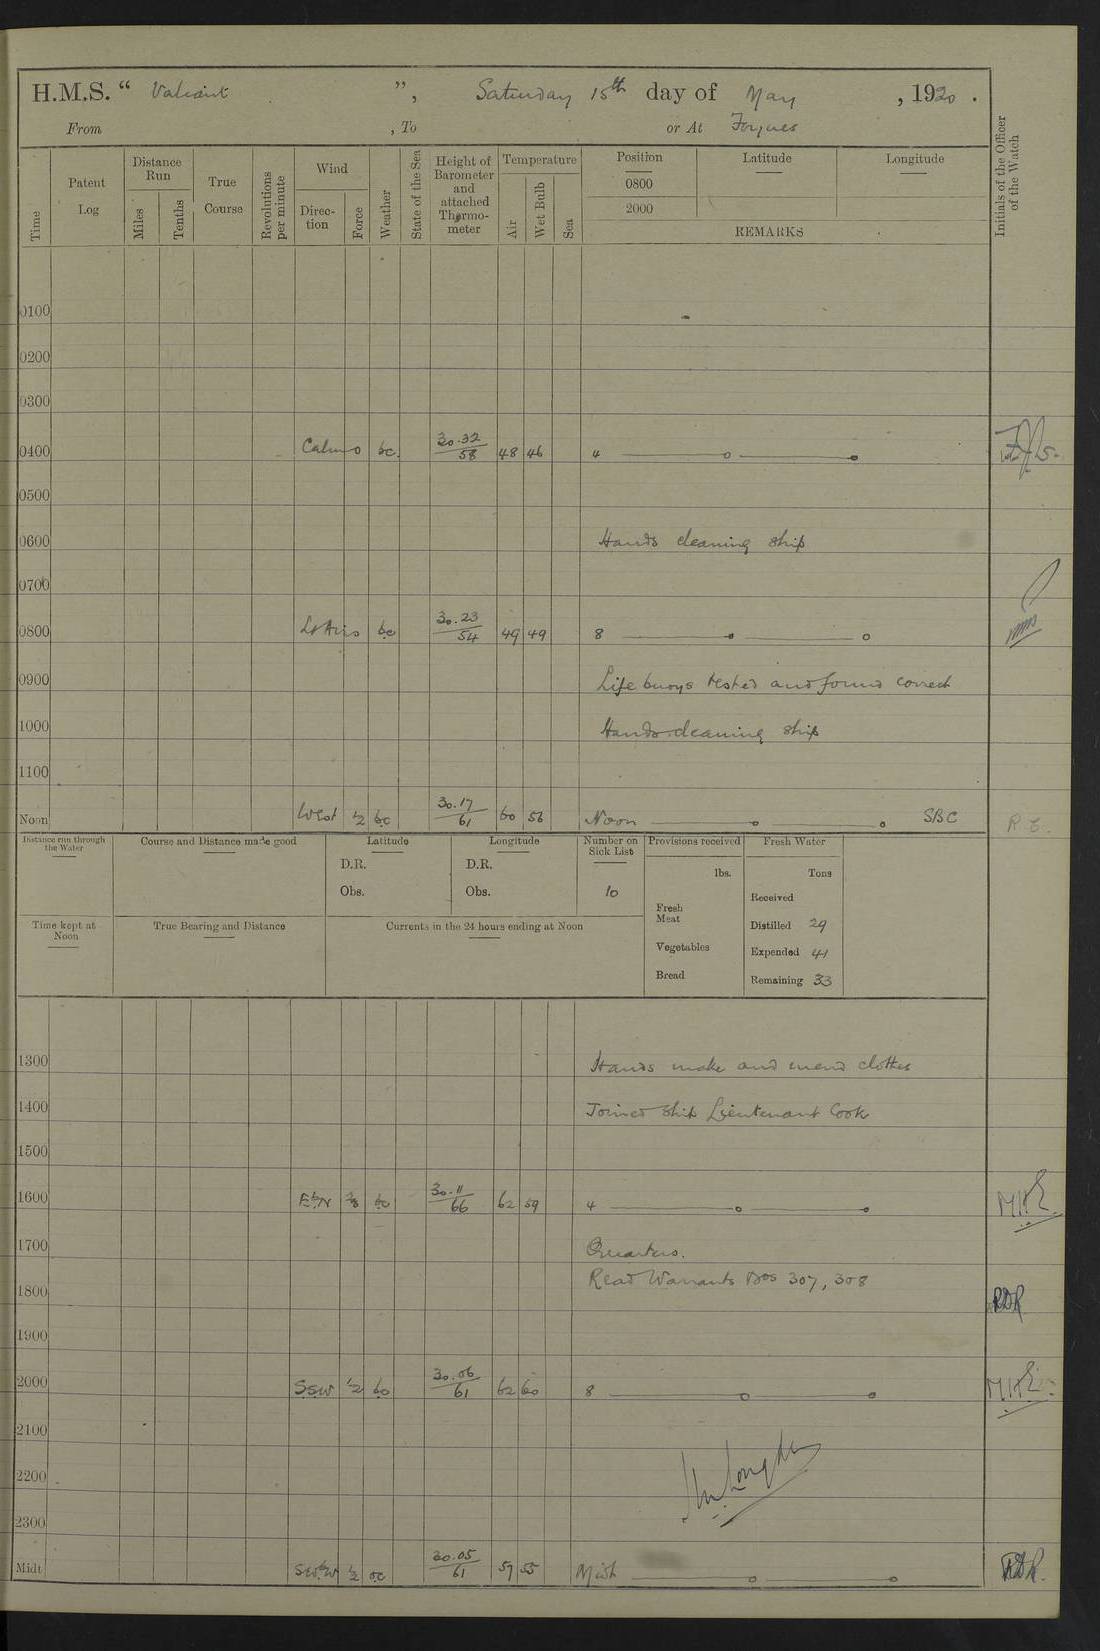 H.M.S. “ Valiant ”, Saturday 15th day of May , 1920 .
From , To or At
Time
Patent Log
Distance Run
Miles
Tenths
True Course
Revolutions per minute
Wind
Direction
Force
Weather
State of the Sea
Height of Barometer and attached Thermometer
Temperature
Air
Wet Bulb
Sea
Position
0800
2000
Latitude
Longitude
REMARKS
Initials of the Officer of the Watch
0100
0200
0300
0400 Calm 0 bc. 30.32/58 48 46 4
0500
0600 Hands cleaning ship
0700
0800 Lt Airs bc 30.23/54 49 49 8
0900 Life buoys tested and found correct
1000 Hands cleaning ship
1100
Noon West ½ bc 30.17/61 60 56 Noon SBC R C.
Distance run through the Water
Course and Distance made good
Latitude
D.R.
Obs.
Longitude
D.R.
Obs.
Number on Sick List
10
Provisions received
lbs.
Fresh Meat
Vegetables
Bread
Fresh Water
Tons
Received
Distilled 29
Expended 41
Remaining 33
Time kept at Noon
True Bearing and Distance
Currents in the 24 hours ending at Noon
1300 Hands make and mend clothes
1400 Joined ship Lieutenant Cook
1500
1600 EbN bc 30.11/66 62 59 4
1700 Quarters.
Read Warrants Nos 307, 308
1800 RDR
1900
2000 SSW ½ bc 30.06/61 62 60 8
2100
2200
2300
Midt SWbW ½ oc 30.05/61 57 55 Midt RDR.